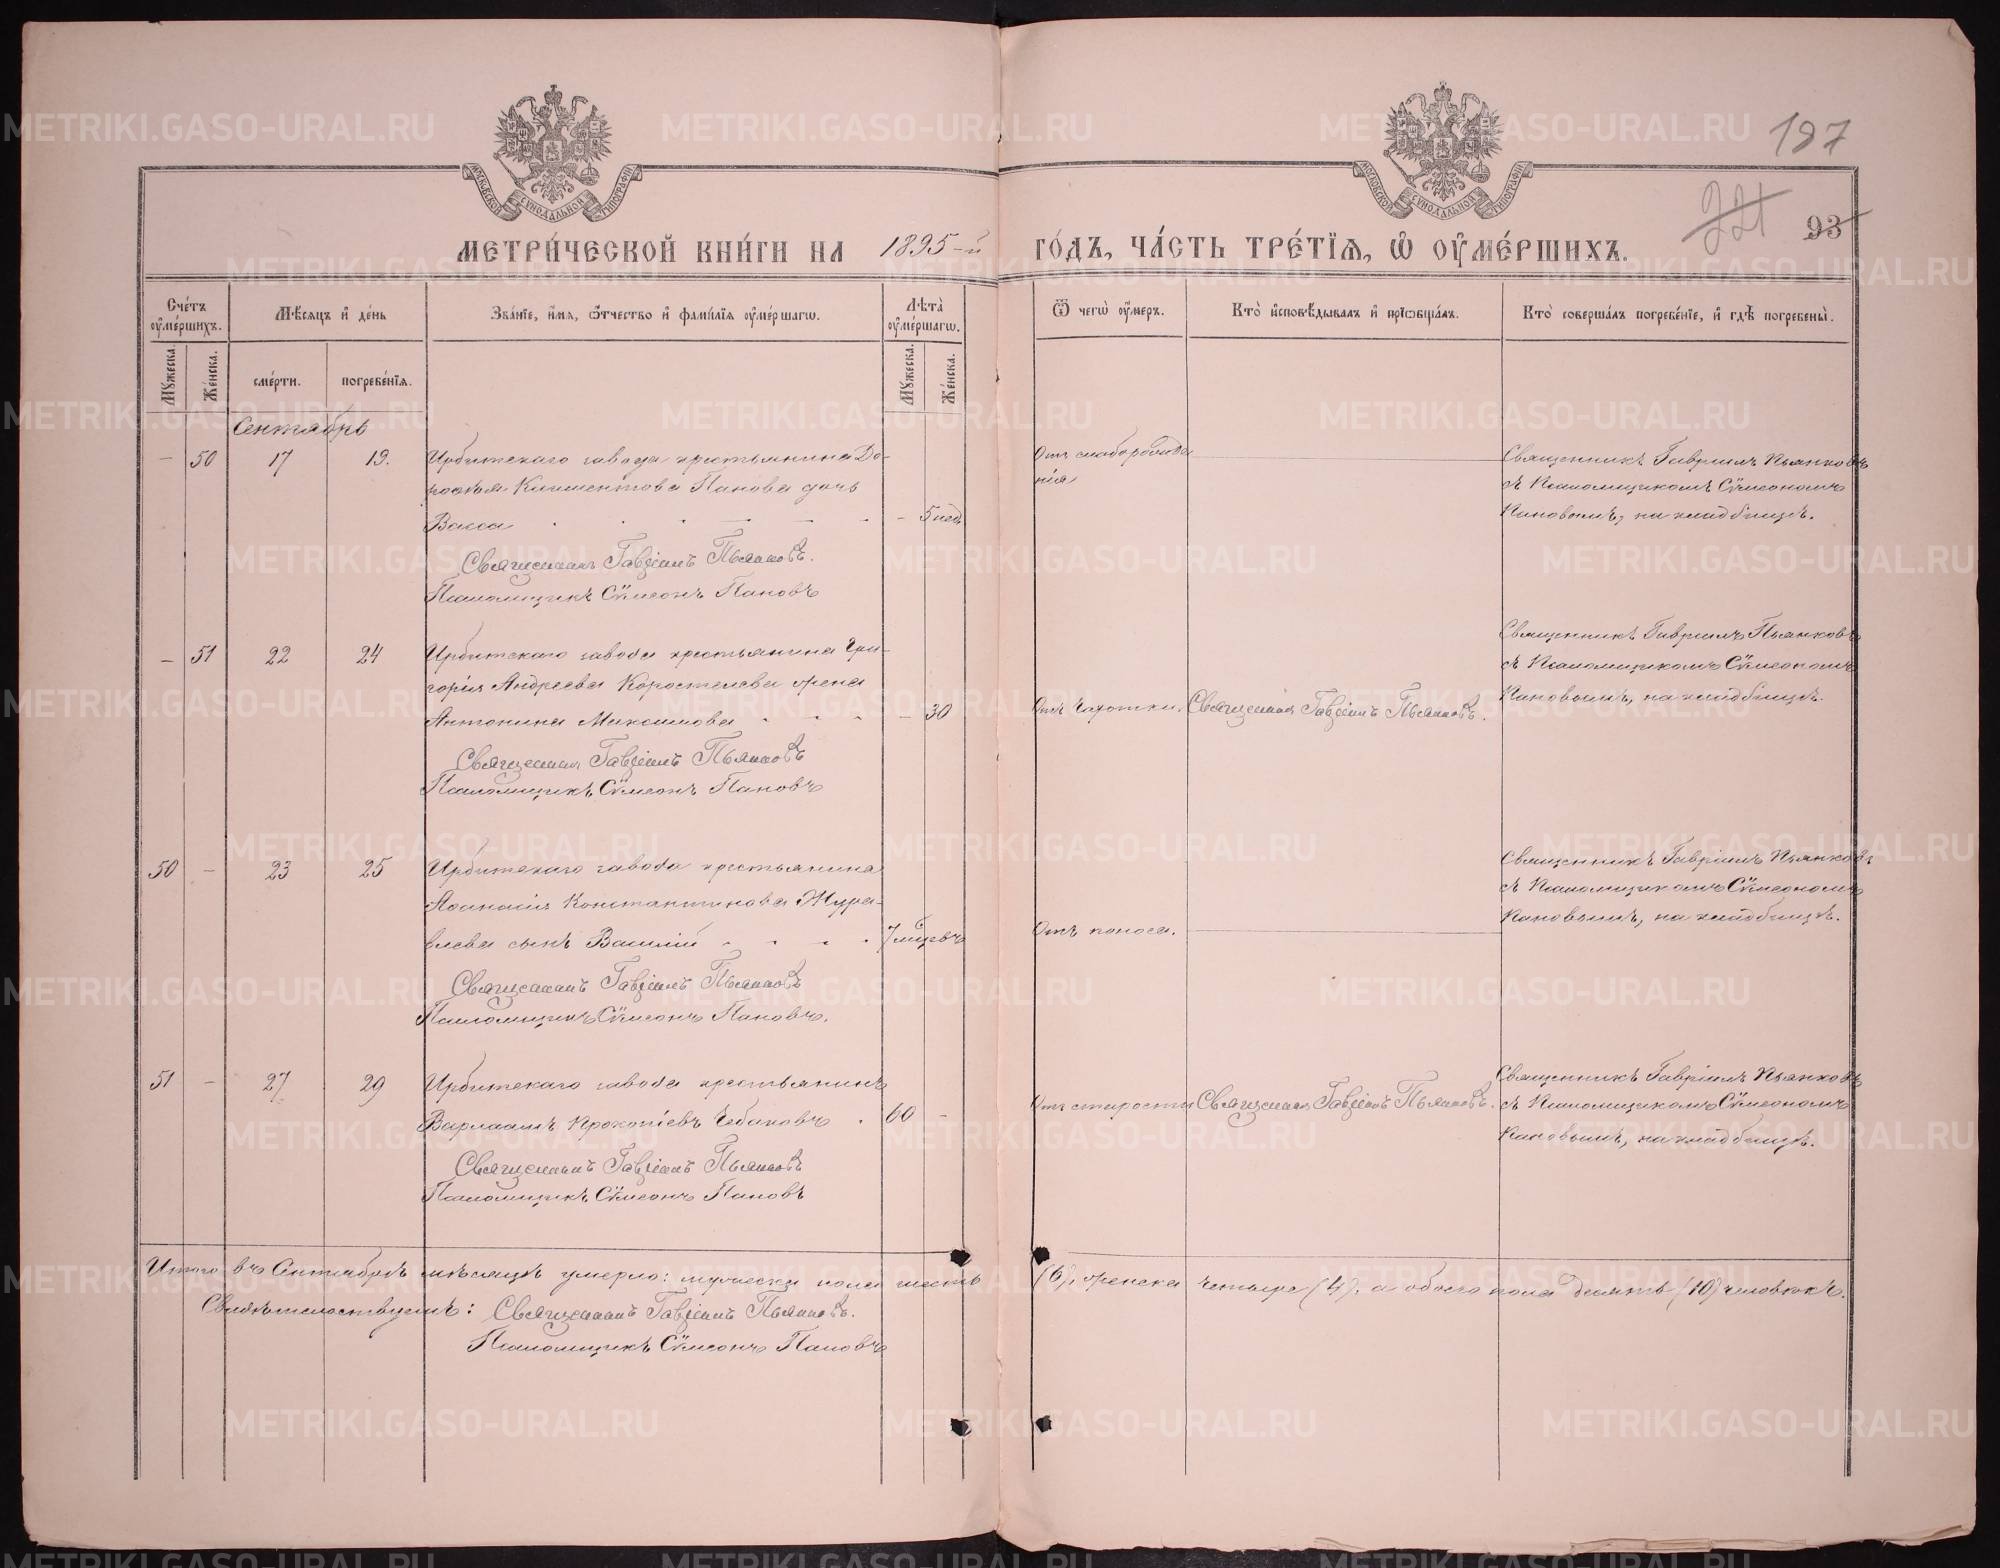 187
221
93
МЕТРИЧЕСКОЙ КНИГИ НА 1895-й ГОДЪ, ЧАСТЬ ТРЕТІЯ, Ѿ ОУМЕРШИХЪ.
МОСКОВСКОЙ СѴНОДАЛЬНОЙ ТИПОГРАФІИ
МОСКОВСКОЙ СѴНОДАЛЬНОЙ ТИПОГРАФІИ
Счетъ оумершихъ.
Мѣсяцъ и день
Званіе, имя, отчество и фамилія оумершагѡ.
Лѣта оумершагѡ.
Ѿ чегѡ оумеръ.
Кто исповѣдывалъ и пріѡбщалъ.
Кто совершалъ погребеніе, и гдѣ погребены.
Мужеска.
Женска.
смерти.
погребенія.
Мужеска.
Женска.
Сентябрь
– 50 17 19. Ирбитскаго завода крестьянина До-
рофея Климентова Панова дочь
Васса – 5 нед.
Отъ слаборожде
нія
Священникъ Гавріилъ Пьянковъ
съ Псаломщикомъ Сѵмеономъ
Пановымъ, на кладбищѣ.
Священникъ Гавріилъ Пьянковъ.
Псаломщикъ Сѵмеонъ Пановъ
– 51 22 24 Ирбитскаго завода крестьянина Гри-
горія Андреева Коростелева жена
Антонина Максимова – 30
Отъ чахотки. Священникъ Гавріилъ Пьянковъ.
Священникъ Гавріилъ Пьянковъ
съ Псаломщикомъ Сѵмеономъ
Пановымъ, на кладбищѣ.
Священникъ Гавріилъ Пьянковъ
Псаломщикъ Сѵмеонъ Пановъ
50 – 23 25 Ирбитскаго завода крестьянина
Аѳанасія Константинова Жура-
влева сынъ Василій 7 мѣсяцевъ
Отъ поноса.
Священникъ Гавріилъ Пьянковъ
съ Псаломщикомъ Сѵмеономъ
Пановымъ, на кладбищѣ.
Священникъ Гавріилъ Пьянковъ
Псаломщикъ Сѵмеонъ Пановъ.
51 – 27 29 Ирбитскаго завода крестьянинъ
Варлаамъ Прокопіевъ Чебаковъ 60 –
Отъ старости Священникъ Гавріилъ Пьянковъ.
Священникъ Гавріилъ Пьянковъ
съ Псаломщикомъ Сѵмеономъ
Пановымъ, на кладбищѣ.
Священникъ Гавріилъ Пьянковъ
Псаломщикъ Сѵмеонъ Пановъ
Итого въ Сентябрѣ мѣсяцѣ умерло: мужеска пола шесть (6), женска четыре (4), а обоего пола десять (10) человѣкъ.
Свидѣтельствуемъ: Священникъ Гавріилъ Пьянковъ.
Псаломщикъ Сѵмеонъ Пановъ
METRIKI.GASO-URAL.RU